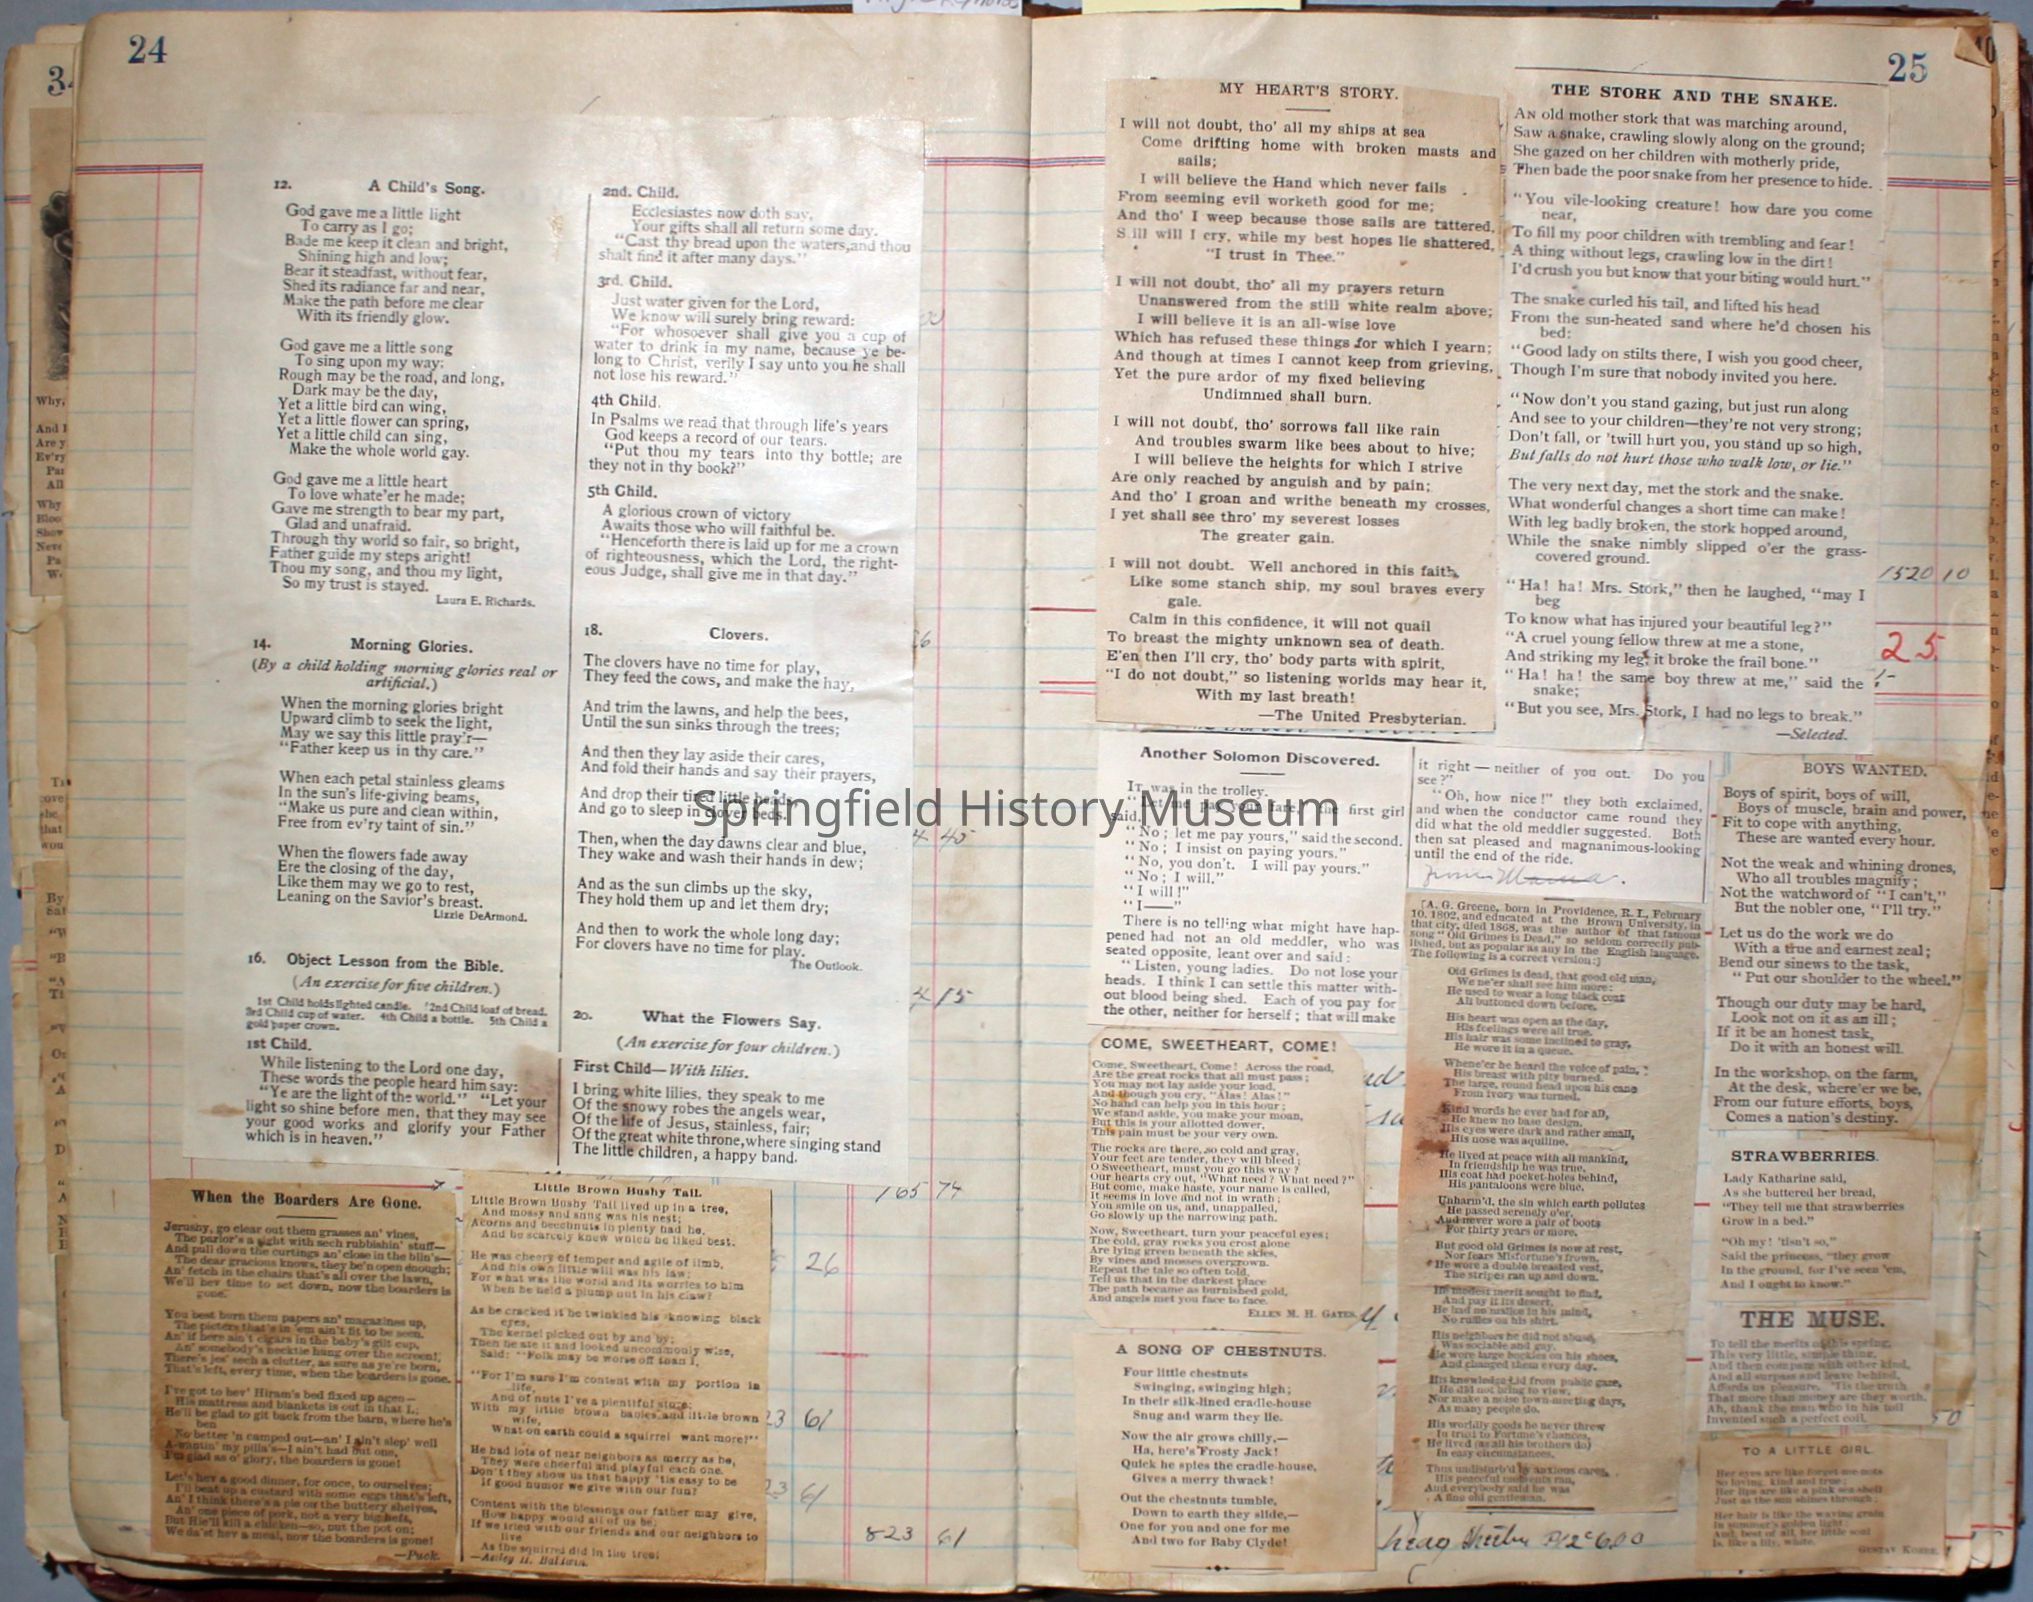 24
12. A Child's Song.
God gave me a little light
To carry as I go;
Bade me keep it clean and bright,
Shining high and low;
Bear it steadfast, without fear,
Shed its radiance far and near,
Make the path before me clear
With its friendly glow.
God gave me a little song
To sing upon my way;
Rough may be the road, and long,
Dark may be the day,
Yet a little bird can wing,
Yet a little flower can spring,
Yet a little child can sing,
Make the whole world gay.
God gave me a little heart
To love whate'er he made;
Gave me strength to bear my part,
Glad and unafraid.
Through thy world so fair, so bright,
Father guide my steps aright!
Thou my song, and thou my light,
So my trust is stayed.
Laura E. Richards.
14. Morning Glories.
(By a child holding morning glories real or
artificial.)
When the morning glories bright
Upward climb to seek the light,
May we say this little pray'r—
"Father keep us in thy care."
When each petal stainless gleams
In the sun's life-giving beams,
"Make us pure and clean within,
Free from ev'ry taint of sin."
When the flowers fade away
Ere the closing of the day,
Like them may we go to rest,
Leaning on the Savior's breast.
Lizzie DeArmond.
16. Object Lesson from the Bible.
(An exercise for five children.)
1st Child holds lighted candle. 2nd Child loaf of bread.
3rd Child cup of water. 4th Child a bottle. 5th Child a
gold paper crown.
1st Child.
While listening to the Lord one day,
These words the people heard him say:
"Ye are the light of the world." "Let your
light so shine before men, that they may see
your good works and glorify your Father
which is in heaven."
2nd. Child.
Ecclesiastes now doth say,
Your gifts shall all return some day.
"Cast thy bread upon the waters,and thou
shalt find it after many days."
3rd. Child.
Just water given for the Lord,
We know will surely bring reward:
"For whosoever shall give you a cup of
water to drink in my name, because ye be-
long to Christ, verily I say unto you he shall
not lose his reward."
4th Child.
In Psalms we read that through life's years
God keeps a record of our tears.
"Put thou my tears into thy bottle; are
they not in thy book?"
5th Child.
A glorious crown of victory
Awaits those who will faithful be.
"Henceforth there is laid up for me a crown
of righteousness, which the Lord, the right-
eous Judge, shall give me in that day."
18. Clovers.
The clovers have no time for play,
They feed the cows, and make the hay,
And trim the lawns, and help the bees,
Until the sun sinks through the trees;
And then they lay aside their cares,
And fold their hands and say their prayers,
And drop their tired little heads,
And go to sleep in clover beds.
Then, when the day dawns clear and blue,
They wake and wash their hands in dew;
And as the sun climbs up the sky,
They hold them up and let them dry;
And then to work the whole long day;
For clovers have no time for play.
The Outlook.
20. What the Flowers Say.
(An exercise for four children.)
First Child—With lilies.
I bring white lilies, they speak to me
Of the snowy robes the angels wear,
Of the life of Jesus, stainless, fair;
Of the great white throne,where singing stand
The little children, a happy band.
When the Boarders Are Gone.
Jerushy, go clear out them grasses an' vines,
The parlor's a sight with sech rubbishin' stuff—
And pull down the curtings an' close in the blin's—
The dear gracious knows, they be'n open enough;
An' fetch in the chairs that's all over the lawn,
We'll hev time to set down, now the boarders is
gone.
You best burn them papers an' magazines up,
The picters that's in 'em ain't fit to be seen.
An' if here ain't cigars in the baby's gilt cup,
An' somebody's necktie hung over the screen!
There's jes' sech a clutter, as sure as ye're born,
That's left, every time, when the boarders is gone.
I've got to hev' Hiram's bed fixed up agen—
His mattress and blankets is out in that L;
He'll be glad to git back from the barn, where he's
ben
No better 'n camped out—an' I ain't slep' well
A-wantin' my pilla's—I ain't had but one,
I'm glad as o' glory, the boarders is gone!
Let's hev a good dinner, for once, to ourselves;
I'll beat up a custard with some eggs that's left,
An' I think there's a pie on the buttery shelves,
An' one piece of pork, not a very big heft,
But Hie'll kill a chicken—so, put the pot on;
We da'st hev a meal, now the boarders is gone!
—Puck.
Little Brown Bushy Tail.
Little Brown Bushy Tail lived up in a tree,
And mossy and snug was his nest;
Acorns and beechnuts in plenty had he,
And he scarcely knew which he liked best.
He was cheery of temper and agile of limb,
And his own little will was his law;
For what was the world and its worries to him
When he held a plump nut in his claw?
As he cracked it he twinkled his knowing black
eyes,
The kernel picked out by and by;
Then he ate it and looked uncommonly wise,
Said: "Folk may be worse off than I,
"For I'm sure I'm content with my portion in
life,
And of nuts I've a plentiful store;
With my little brown babies and little brown
wife,
What on earth could a squirrel want more?"
He had lots of near neighbors as merry as he,
They were cheerful and playful each one.
Don't they show us that happy 'tis easy to be
If good humor we give with our fun?
Content with the blessings our father may give,
How happy would all of us be;
If we tried with our friends and our neighbors to
live
As the squirrel did in the tree!
—Astley H. Baldwin.
165 74
26
23 61
23 61
823 61
4 45
4 15
25
MY HEART'S STORY.
I will not doubt, tho' all my ships at sea
Come drifting home with broken masts and
sails;
I will believe the Hand which never fails
From seeming evil worketh good for me;
And tho' I weep because those sails are tattered,
Still will I cry, while my best hopes lie shattered,
"I trust in Thee."
I will not doubt, tho' all my prayers return
Unanswered from the still white realm above;
I will believe it is an all-wise love
Which has refused these things for which I yearn;
And though at times I cannot keep from grieving,
Yet the pure ardor of my fixed believing
Undimmed shall burn.
I will not doubt, tho' sorrows fall like rain
And troubles swarm like bees about to hive;
I will believe the heights for which I strive
Are only reached by anguish and by pain;
And tho' I groan and writhe beneath my crosses,
I yet shall see thro' my severest losses
The greater gain.
I will not doubt. Well anchored in this faith,
Like some stanch ship, my soul braves every
gale.
Calm in this confidence, it will not quail
To breast the mighty unknown sea of death.
E'en then I'll cry, tho' body parts with spirit,
"I do not doubt," so listening worlds may hear it,
With my last breath!
—The United Presbyterian.
THE STORK AND THE SNAKE.
AN old mother stork that was marching around,
Saw a snake, crawling slowly along on the ground;
She gazed on her children with motherly pride,
Then bade the poor snake from her presence to hide.
"You vile-looking creature! how dare you come
near,
To fill my poor children with trembling and fear!
A thing without legs, crawling low in the dirt!
I'd crush you but know that your biting would hurt."
The snake curled his tail, and lifted his head
From the sun-heated sand where he'd chosen his
bed:
"Good lady on stilts there, I wish you good cheer,
Though I'm sure that nobody invited you here.
"Now don't you stand gazing, but just run along
And see to your children—they're not very strong;
Don't fall, or 'twill hurt you, you stand up so high,
But falls do not hurt those who walk low, or lie."
The very next day, met the stork and the snake.
What wonderful changes a short time can make!
With leg badly broken, the stork hopped around,
While the snake nimbly slipped o'er the grass-
covered ground.
"Ha! ha! Mrs. Stork," then he laughed, "may I
beg
To know what has injured your beautiful leg?"
"A cruel young fellow threw at me a stone,
And striking my leg, it broke the frail bone."
"Ha! ha! the same boy threw at me," said the
snake;
"But you see, Mrs. Stork, I had no legs to break."
—Selected.
1520 10
25
Another Solomon Discovered.
IT was in the trolley.
the first girl
said.
"No; let me pay yours," said the second.
"No; I insist on paying yours."
"No, you don't. I will pay yours."
"No; I will."
"I will!"
"I——"
There is no telling what might have hap-
pened had not an old meddler, who was
seated opposite, leant over and said:
"Listen, young ladies. Do not lose your
heads. I think I can settle this matter with-
out blood being shed. Each of you pay for
the other, neither for herself; that will make
it right—neither of you out. Do you
see?"
"Oh, how nice!" they both exclaimed,
and when the conductor came round they
did what the old meddler suggested. Both
then sat pleased and magnanimous-looking
until the end of the ride.
COME, SWEETHEART, COME!
Come, Sweetheart, Come! Across the road,
Are the great rocks that all must pass;
You may not lay aside your load,
And though you cry, "Alas! Alas!"
No hand can help you in this hour;
We stand aside, you make your moan,
But this is your allotted dower,
This pain must be your very own.
The rocks are there, so cold and gray,
Your feet are tender, they will bleed;
O Sweetheart, must you go this way?
Our hearts cry out, "What need? What need?"
But come, make haste, your name is called,
It seems in love and not in wrath;
You smile on us, and, unappalled,
Go slowly up the narrowing path.
Now, Sweetheart, turn your peaceful eyes;
The cold, gray rocks you crost alone
Are lying green beneath the skies,
By vines and mosses overgrown.
Repeat the tale so often told,
Tell us that in the darkest place
The path became as burnished gold,
And angels met you face to face.
ELLEN M. H. GATES.
A SONG OF CHESTNUTS.
Four little chestnuts
Swinging, swinging high;
In their silk-lined cradle-house
Snug and warm they lie.
Now the air grows chilly,—
Ha, here's Frosty Jack!
Quick he spies the cradle-house,
Gives a merry thwack!
Out the chestnuts tumble,
Down to earth they slide,—
One for you and one for me
And two for Baby Clyde!
[A. G. Greene, born in Providence, R. I., February
10, 1802, and educated at the Brown University, in
that city, died 1868, was the author of that famous
song "Old Grimes is Dead," so seldom correctly pub-
lished, but as popular as any in the English language.
The following is a correct version:]
Old Grimes is dead, that good old man,
We ne'er shall see him more;
He used to wear a long black coat
All buttoned down before.
His heart was open as the day,
His feelings were all true.
His hair was some inclined to gray,
He wore it in a queue.
Whene'er he heard the voice of pain,
His breast with pity burned.
The large, round head upon his cane
From ivory was turned.
Kind words he ever had for all,
He knew no base design.
His eyes were dark and rather small,
His nose was aquiline.
He lived at peace with all mankind,
In friendship he was true,
His coat had pocket-holes behind,
His pantaloons were blue.
Unharm'd, the sin which earth pollutes
He passed serenely o'er.
And never wore a pair of boots
For thirty years or more.
But good old Grimes is now at rest,
Nor fears Misfortune's frown.
He wore a double breasted vest,
The stripes ran up and down.
He modest merit sought to find,
And pay it its desert,
He had no malice in his mind,
No ruffles on his shirt.
His neighbors he did not abuse,
Was sociable and gay.
He wore large buckles on his shoes,
And changed them every day.
His knowledge hid from public gaze,
He did not bring to view,
Nor make a noise town-meeting days,
As many people do.
His worldly goods he never threw
In trust to Fortune's chances,
He lived (as all his brothers do)
In easy circumstances.
Thus undisturb'd by anxious cares,
His peaceful moments ran,
And everybody said he was
A fine old gentleman.
BOYS WANTED.
Boys of spirit, boys of will,
Boys of muscle, brain and power,
Fit to cope with anything,
These are wanted every hour.
Not the weak and whining drones,
Who all troubles magnify;
Not the watchword of "I can't,"
But the nobler one, "I'll try."
Let us do the work we do
With a true and earnest zeal;
Bend our sinews to the task,
"Put our shoulder to the wheel."
Though our duty may be hard,
Look not on it as an ill;
If it be an honest task,
Do it with an honest will.
In the workshop, on the farm,
At the desk, where'er we be,
From our future efforts, boys,
Comes a nation's destiny.
STRAWBERRIES.
Lady Katharine said,
As she buttered her bread,
"They tell me that strawberries
Grow in a bed."
"Oh my! 'tisn't so,"
Said the princess, "they grow
In the ground, for I've seen 'em,
And I ought to know."
THE MUSE.
To tell the merits of this spring,
This very little, simple thing,
And then compare with other kind,
And all surpass and leave behind,
Affords us pleasure. 'Tis the truth
That more than money are they worth,
Ah, thank the man who in his toil
Invented such a perfect coil.
TO A LITTLE GIRL.
Her eyes are like forget-me-nots
So loving, kind and true;
Her lips are like a pink sea-shell
Just as the sun shines through;
Her hair is like the waving grain
In summer's golden light;
And, best of all, her little soul
Is, like a lily, white.
GUSTAV KOBBE.
Springfield History Museum